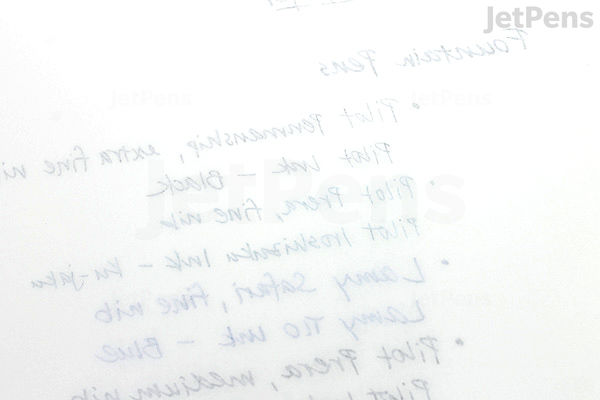 JetPens
Fountain Pens
• Pilot Penmanship, extra fine ni
Pilot Ink - Black
• Pilot Prera, fine nib
Pilot Iroshizuku Ink - Ku-jaku
• Lamy Safari, fine nib
Lamy T10 Ink - Blue
• Pilot Prera, medium nib
Pilot
JetPens
JetPens
JetPens
JetPens
JetPens